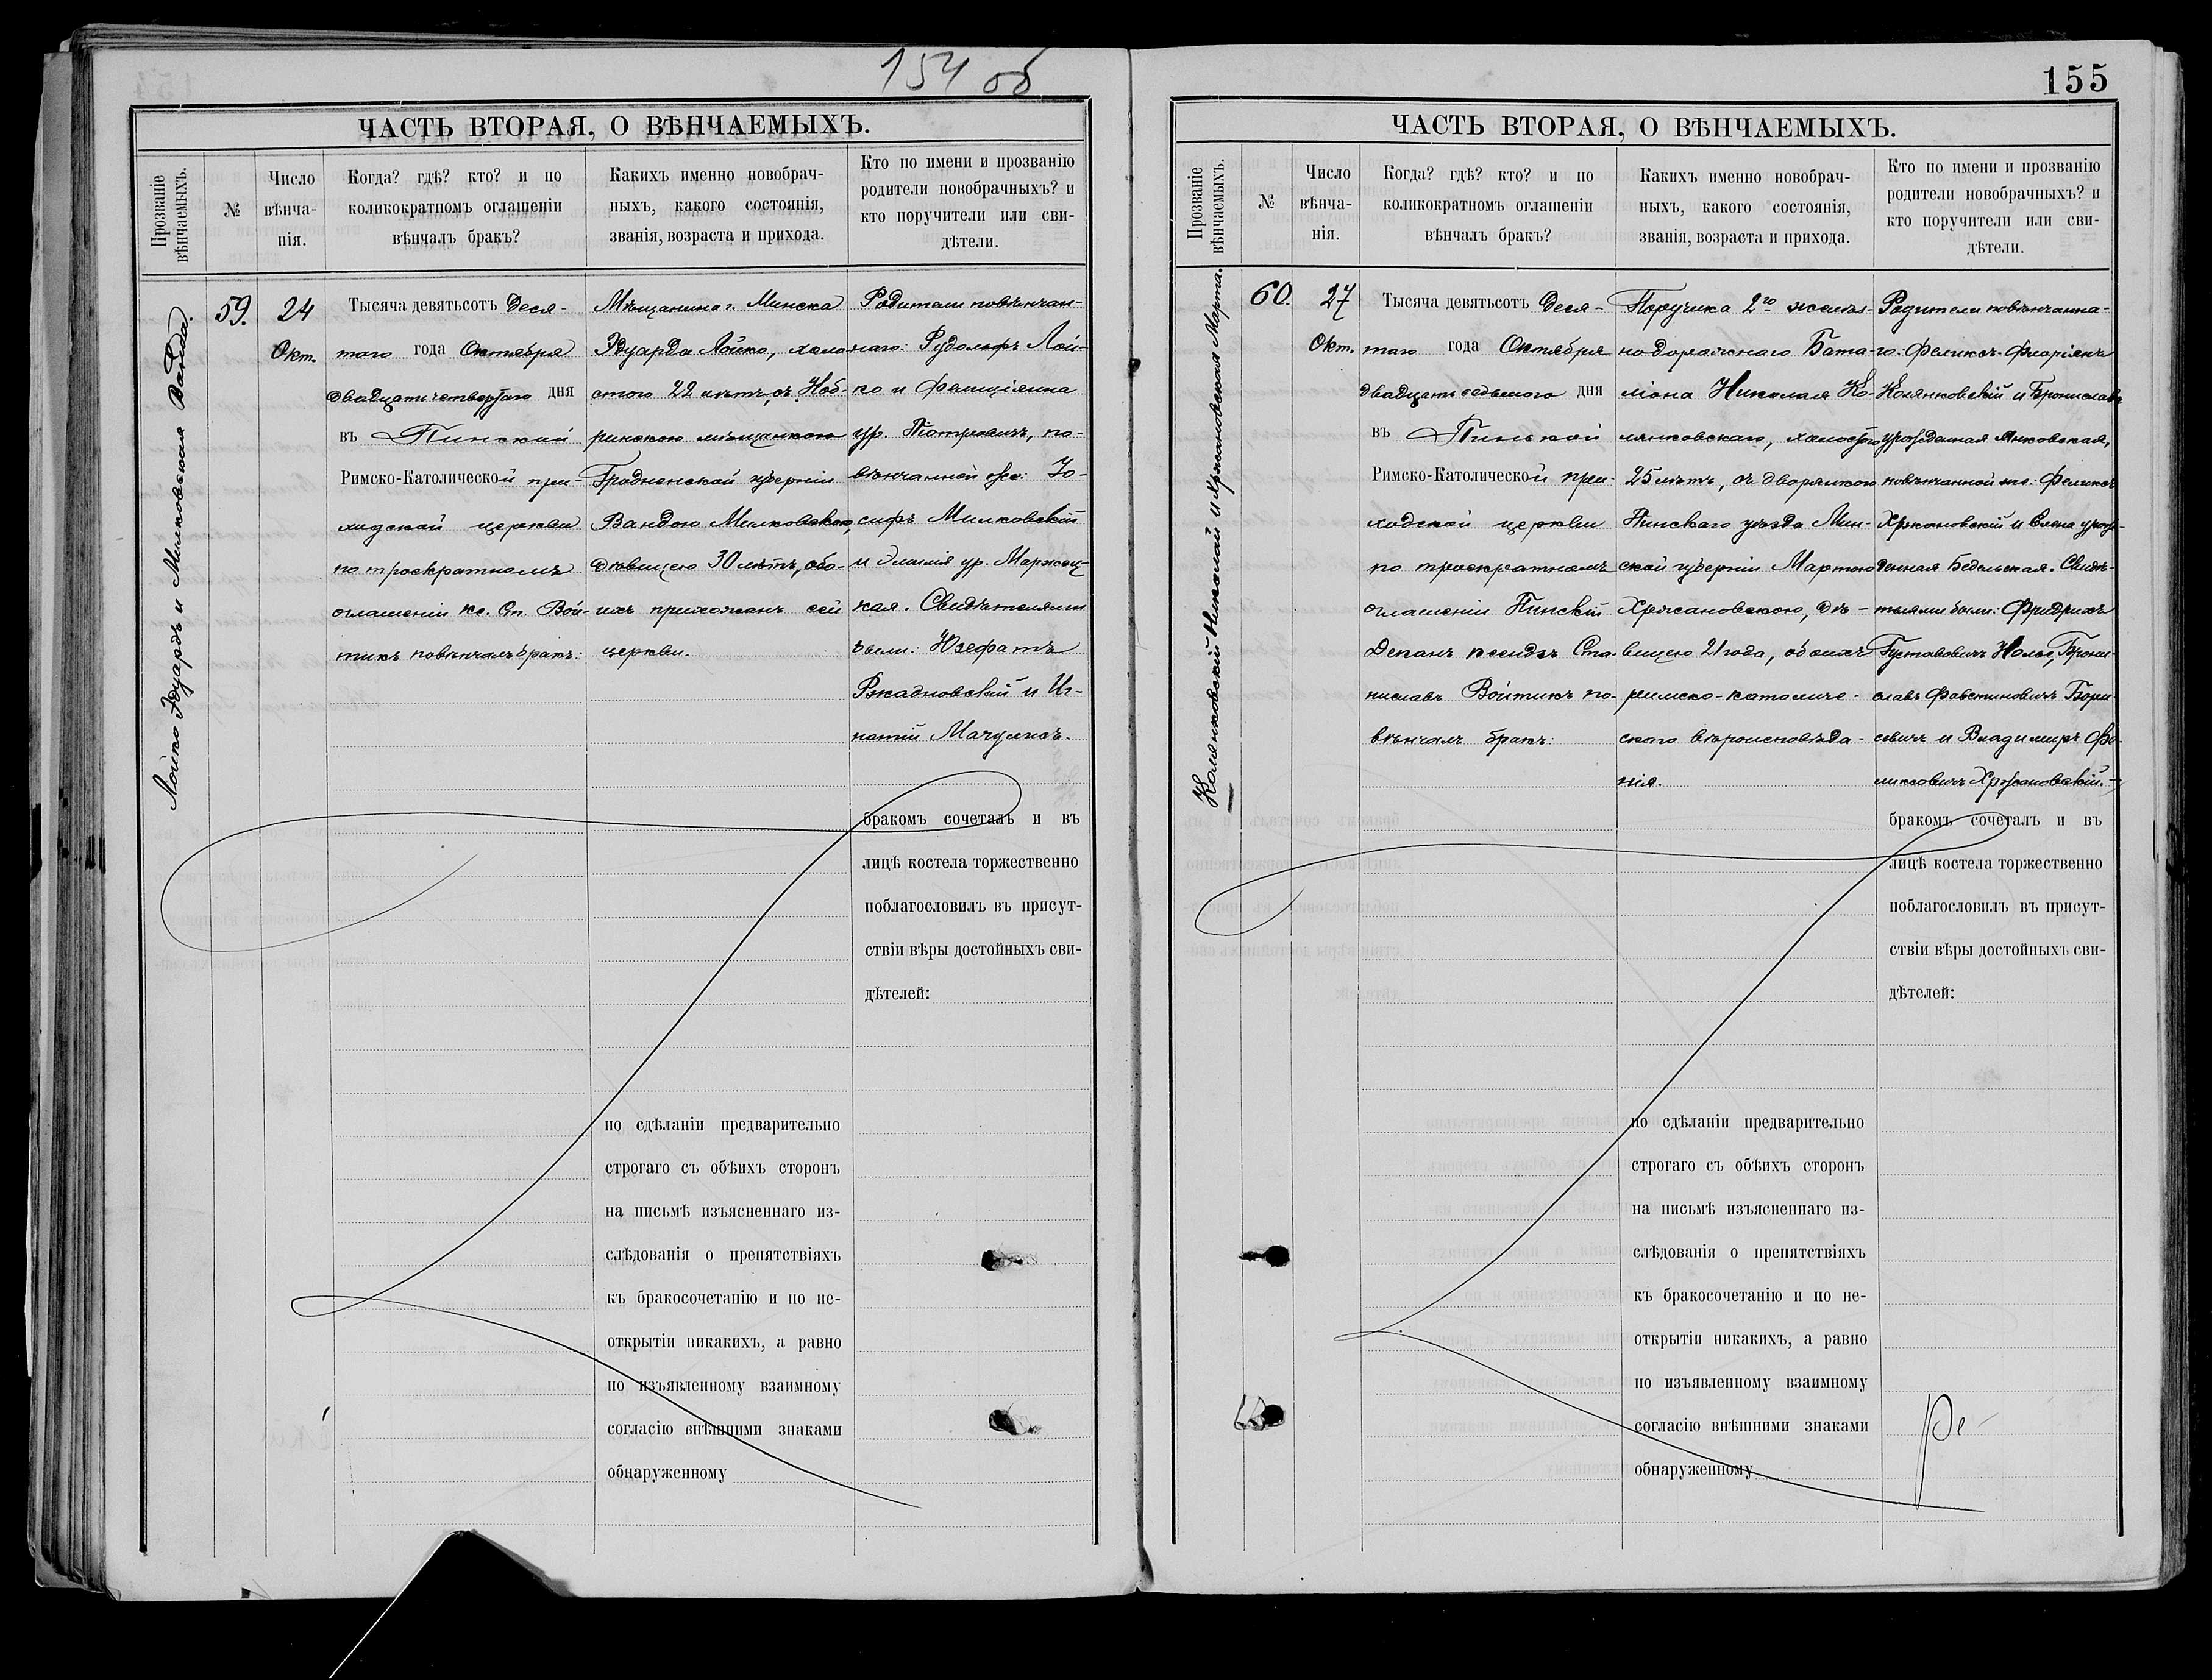 154 об
ЧАСТЬ ВТОРАЯ, О ВѢНЧАЕМЫХЪ.
Прозваніе
вѣнчаемыхъ.
№
Число
вѣнча-
нія.
Когда? гдѣ? кто? и по
коликократномъ оглашеніи
вѣнчалъ бракъ?
Какихъ именно новобрач-
ныхъ, какого состоянія,
званія, возраста и прихода.
Кто по имени и прозванію
родители новобрачныхъ? и
кто поручители или сви-
дѣтели.
Лойко Эдуардъ и Милковская Ванда.
59.
24
Окт.
Тысяча девятьсотъ Деся-
таго года Октября
двадцать четвертаго дня
въ Пинской
Римско-Католической при-
ходской церкви
по троекратномъ
оглашеніи кс. Ст. Вой-
тикъ повѣнчалъ бракъ:
Мѣщанина г. Минска
Эдуарда Лойко, холо-
стого 22 лѣтъ, съ Коб-
ринскою мѣщанкою
Гродненской губерніи
Вандою Милковскою,
дѣвицею 30 лѣтъ, обо-
ихъ прихожанъ сей
церкви.
Родители повѣнчан-
наго: Рудольфъ Лой-
ко и Фелиціянна
ур. Петровичъ, по-
вѣнчанной же: Іо-
сифъ Милковскій
и Эмилія ур. Маржец-
кая. Свидѣтелями
были: Юзефатъ
Ржадковскій и Иг-
натій Мачульскъ.
бракомъ сочеталъ и въ
лицѣ костела торжественно
поблагословилъ въ присут-
ствіи вѣры достойныхъ сви-
дѣтелей:
по сдѣланіи предварительно
строгаго съ обѣихъ сторонъ
на письмѣ изъясненнаго из-
слѣдованія о препятствіяхъ
къ бракосочетанію и по не-
открытіи никакихъ, а равно
по изъявленному взаимному
согласію внѣшними знаками
обнаруженному
155
ЧАСТЬ ВТОРАЯ, О ВѢНЧАЕМЫХЪ.
Прозваніе
вѣнчаемыхъ.
№
Число
вѣнча-
нія.
Когда? гдѣ? кто? и по
коликократномъ оглашеніи
вѣнчалъ бракъ?
Какихъ именно новобрач-
ныхъ, какого состоянія,
званія, возраста и прихода.
Кто по имени и прозванію
родители новобрачныхъ? и
кто поручители или сви-
дѣтели.
Колянковскій Николай и Хржановская Марта.
60.
27
Окт.
Тысяча девятьсотъ Деся-
таго года Октября
двадцать седьмого дня
въ Пинской
Римско-Католической при-
ходской церкви
по троекратномъ
оглашеніи Пинскій
Деканъ ксендзъ Ста-
ниславъ Войтикъ по-
вѣнчалъ бракъ:
Поручика 2го желѣз-
нодорожнаго Бата-
ліона Николая Ко-
лянковскаго, холостого
25 лѣтъ, съ дворянкою
Пинскаго уѣзда Мин-
ской губерніи Мартою
Хржановскою, дѣ-
вицею 21 года, обоихъ
римско-католиче-
скаго вѣроисповѣда-
нія.
Родители повѣнчанна-
го: Феликсъ-Флоріянъ
Колянковскій и Бронислава
урожденная Янковская,
повѣнчанной же: Феликсъ
Хржановскій и Елена урож-
денная Бедельская. Свидѣ-
телями были: Фридрихъ
Густавовичъ Нольс, Брони-
славъ Фавстиновичъ Бори-
севичъ и Владимиръ Фе-
ликсовичъ Хржановскій.
бракомъ сочеталъ и въ
лицѣ костела торжественно
поблагословилъ въ присут-
ствіи вѣры достойныхъ сви-
дѣтелей:
по сдѣланіи предварительно
строгаго съ обѣихъ сторонъ
на письмѣ изъясненнаго из-
слѣдованія о препятствіяхъ
къ бракосочетанію и по не-
открытіи никакихъ, а равно
по изъявленному взаимному
согласію внѣшними знаками
обнаруженному
Ре-